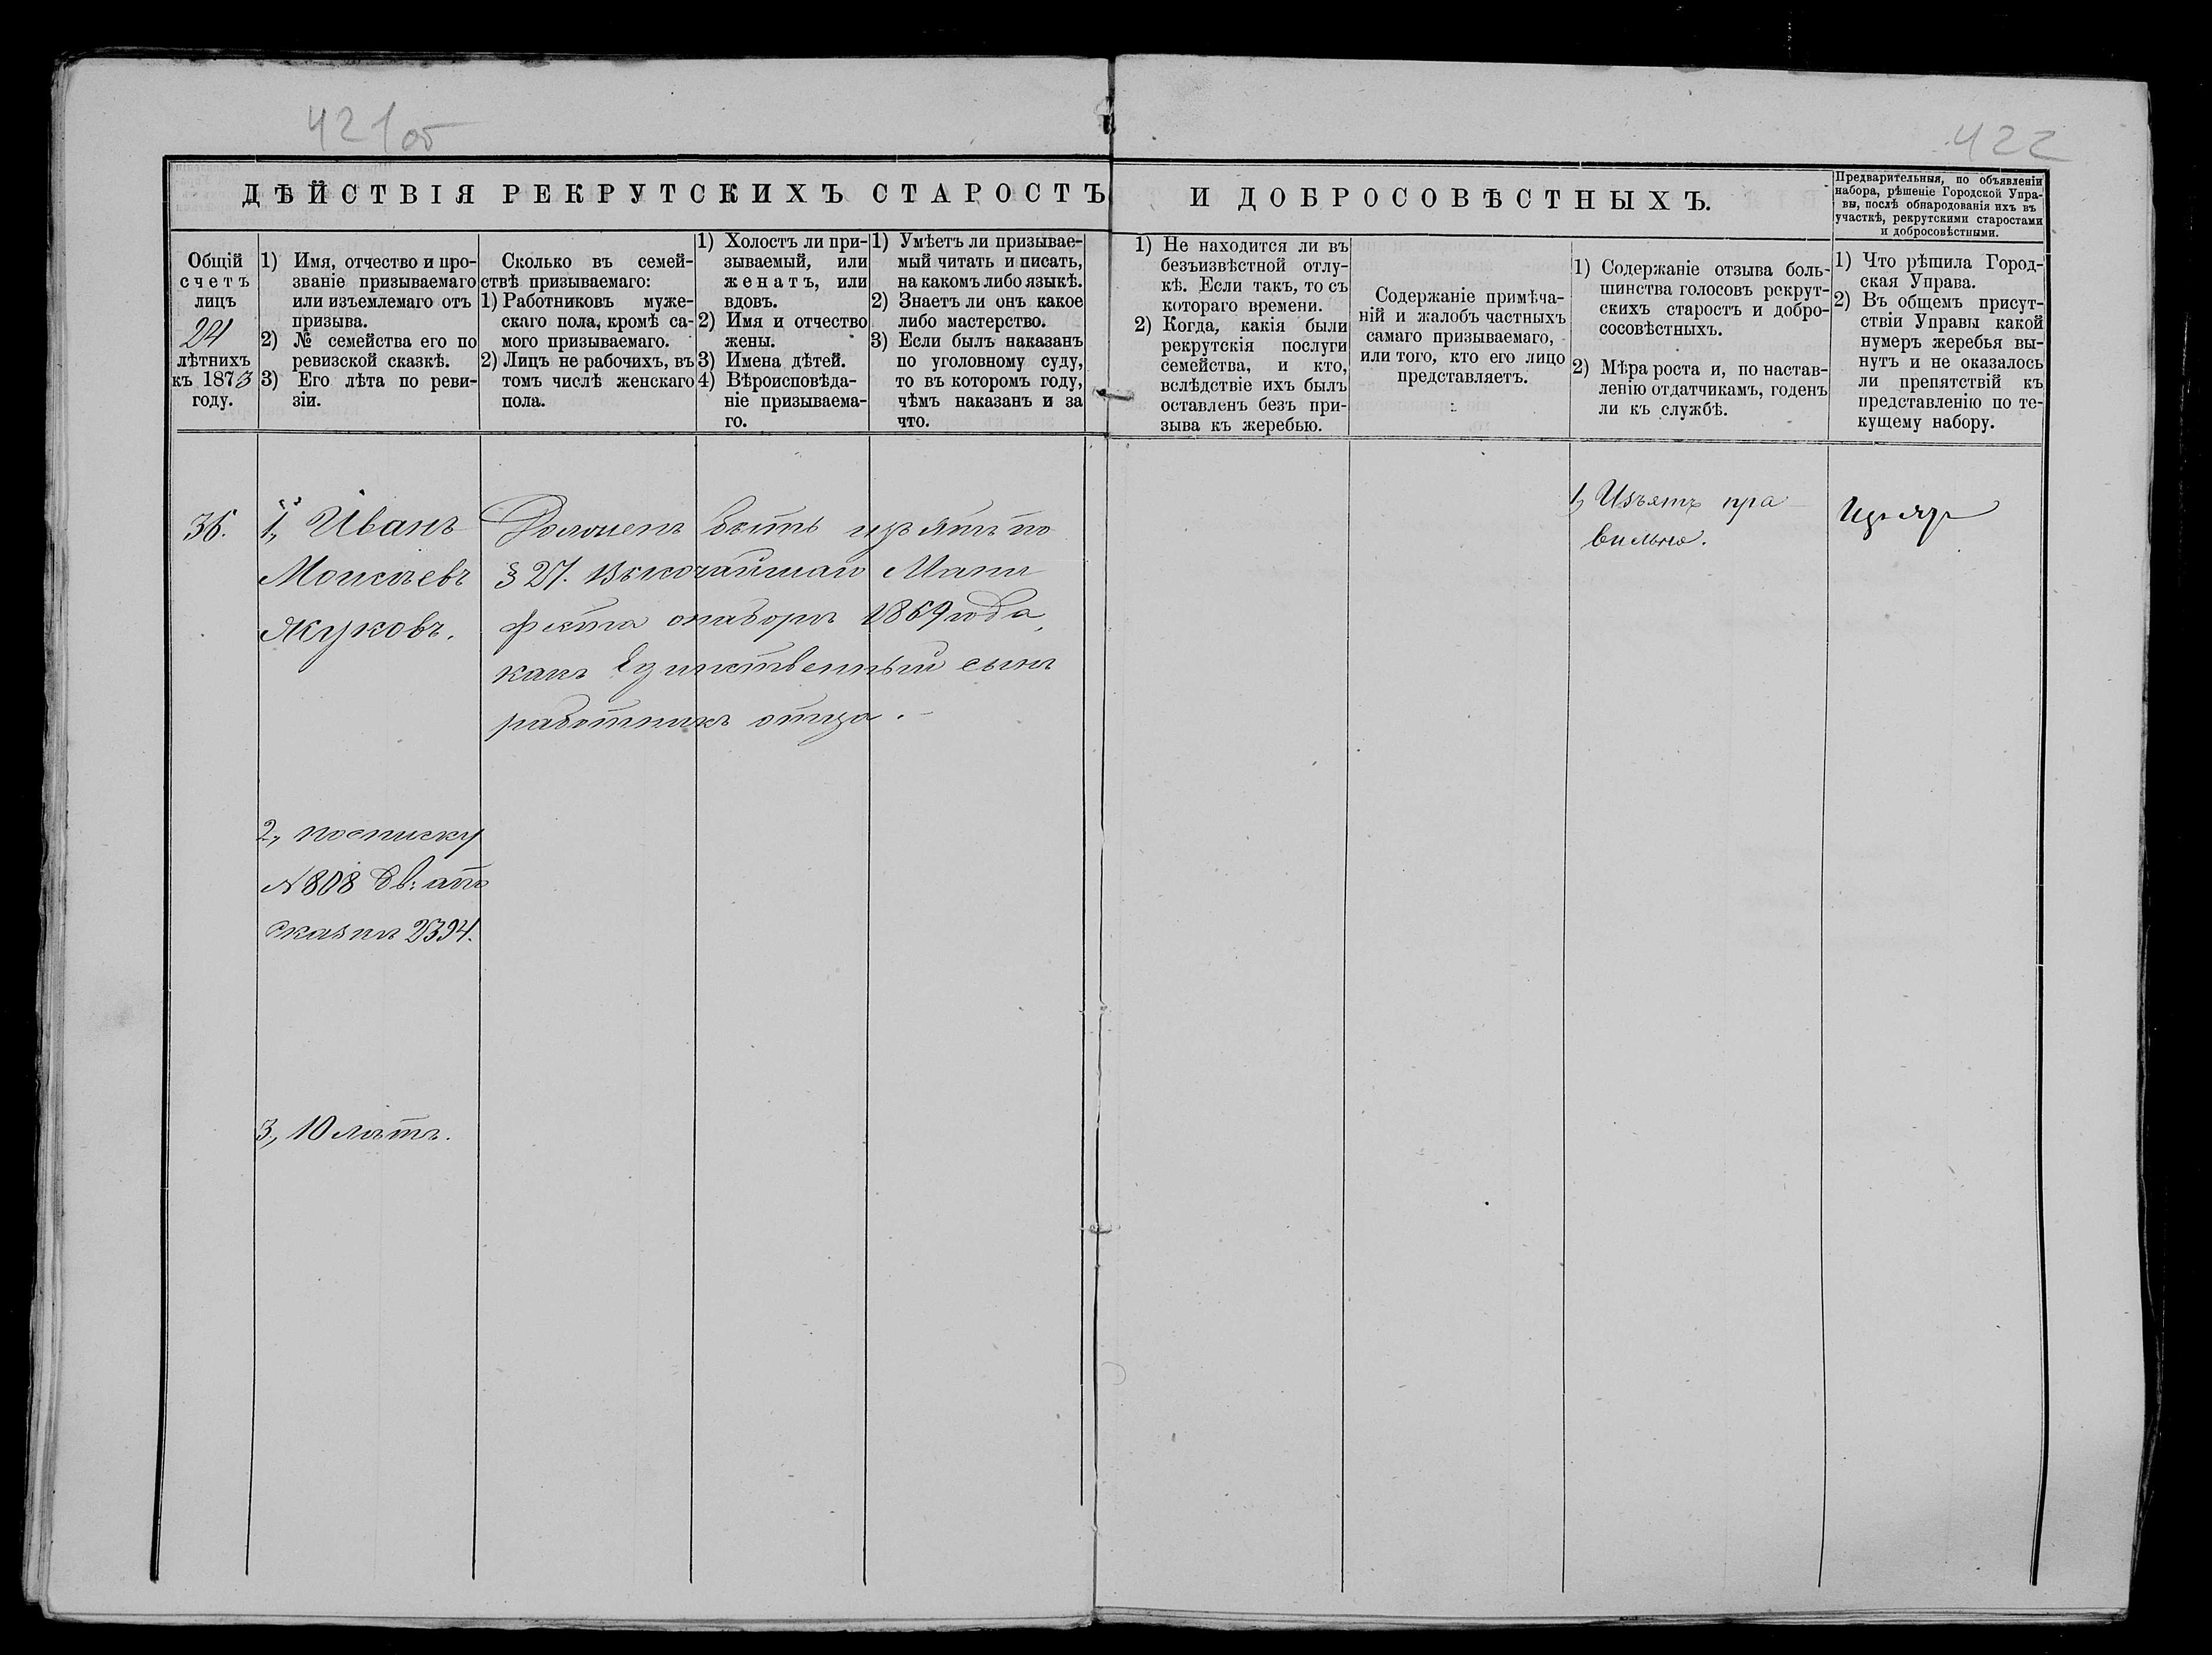 421об
422
ДѢЙСТВІЯ РЕКРУТСКИХЪ СТАРОСТЪ И ДОБРОСОВѢСТНЫХЪ.
Предварительныя, по объявленіи
набора, рѣшеніе Городской Упра-
вы, послѣ обнародованія ихъ въ
участкѣ, рекрутскими старостами
и добросовѣстными.
Общій
счетъ
лицъ
24
лѣтнихъ
къ 1873
году.
1) Имя, отчество и про-
званіе призываемаго
или изъемлемаго отъ
призыва.
2) № семейства его по
ревизской сказкѣ.
3) Его лѣта по реви-
зіи.
Сколько въ семей-
ствѣ призываемаго:
1) Работниковъ муже-
скаго пола, кромѣ са-
мого призываемаго.
2) Лицъ не рабочихъ, въ
томъ числѣ женскаго
пола.
1) Холостъ ли при-
зываемый, или
женатъ, или
вдовъ.
2) Имя и отчество
жены.
3) Имена дѣтей.
4) Вѣроисповѣда-
ніе призываема-
го.
1) Умѣетъ ли призывае-
мый читать и писать,
на какомъ либо языкѣ.
2) Знаетъ ли онъ какое
либо мастерство.
3) Если былъ наказанъ
по уголовному суду,
то въ которомъ году,
чѣмъ наказанъ и за
что.
1) Не находится ли въ
безъизвѣстной отлу-
кѣ. Если такъ, то съ
котораго времени.
2) Когда, какія были
рекрутскія послуги
семейства, и кто,
вслѣдствіе ихъ былъ
оставленъ безъ при-
зыва къ жеребью.
Содержаніе примѣча-
ній и жалобъ частныхъ
самаго призываемаго,
или того, кто его лицо
представляетъ.
1) Содержаніе отзыва боль-
шинства голосовъ рекрут-
скихъ старостъ и добро-
сосовѣстныхъ.
2) Мѣра роста и, по настав-
ленію отдатчикамъ, годенъ
ли къ службѣ.
1) Что рѣшила Город-
ская Управа.
2) Въ общемъ присут-
ствіи Управы какой
нумеръ жеребья вы-
нутъ и не оказалось
ли препятствій къ
представленію по те-
кущему набору.
36.
1, Иванъ
Моисѣевъ
Жуковъ.
2, по списку
№ 808
сказкѣ 2394.
3, 10 лѣтъ.
Долженъ быть изъятъ по
§ 27. Высочайшаго Мани
феста о наборѣ 1869 года,
какъ Единственный сынъ
работникъ отца.
1, Изъятъ пра
вильно.
Изъятъ